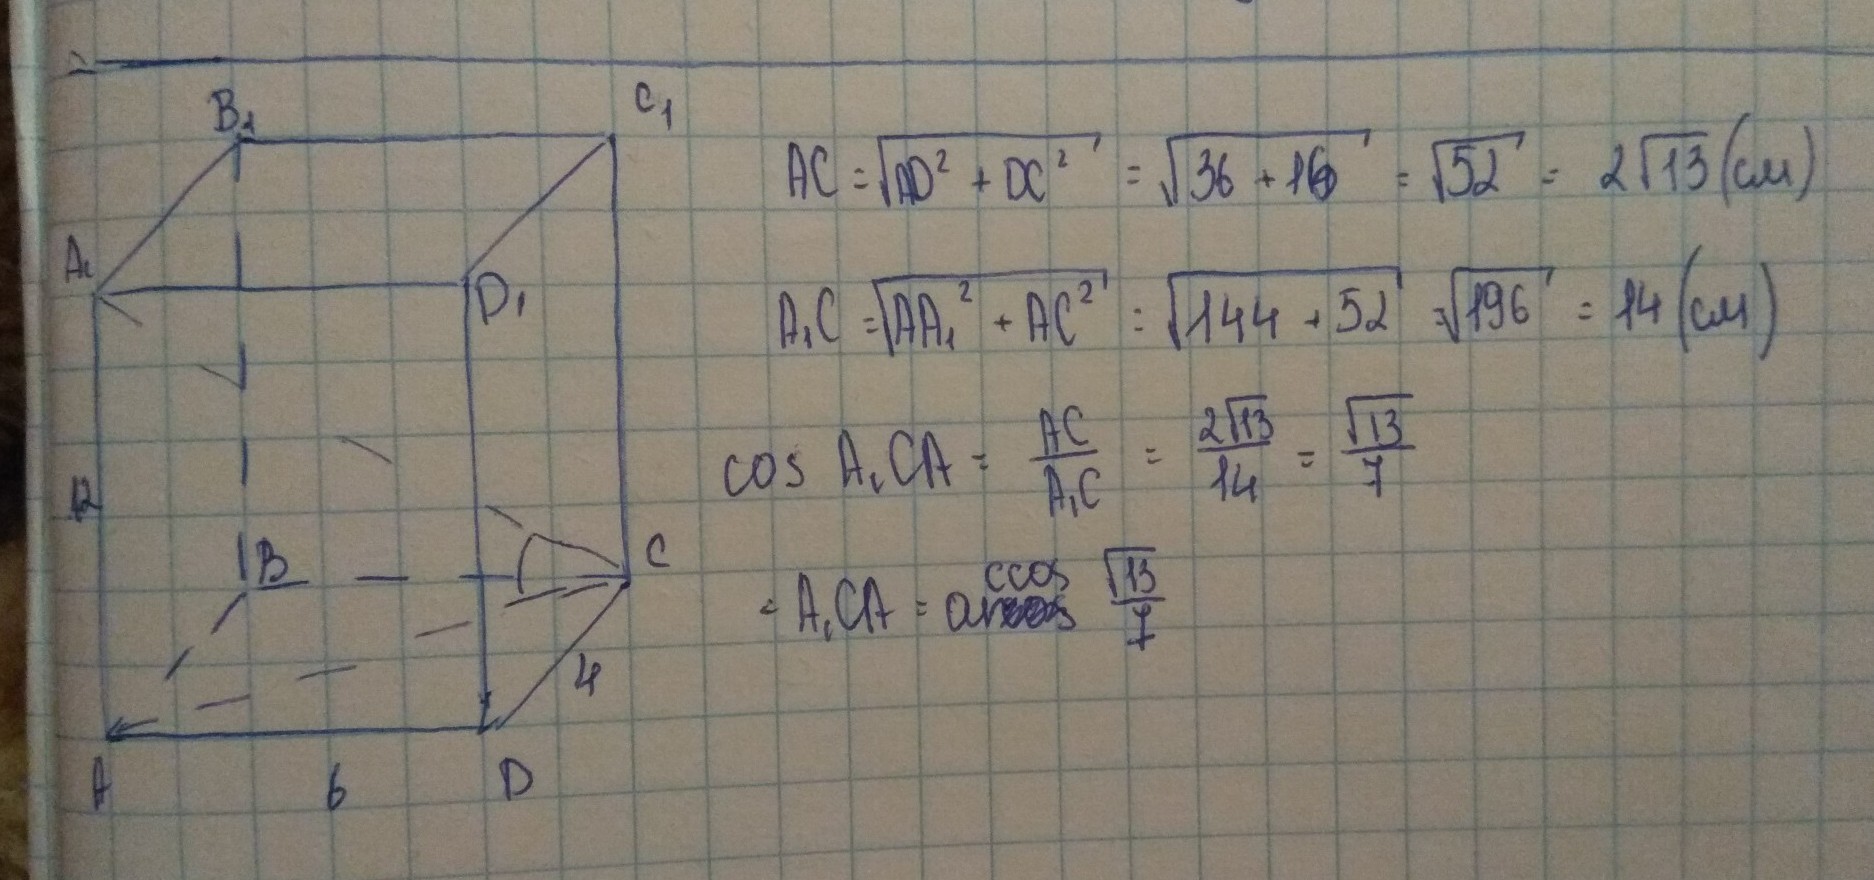 B₁ C₁
A₁ D₁
12
B C
4
A 6 D
AC = √(AD² + DC²) = √(36 + 16) = √52 = 2√13 (см)
A₁C = √(AA₁² + AC²) = √(144 + 52) = √196 = 14 (см)
cos A₁CA = AC/A₁C = 2√13/14 = √13/7
= A₁CA = arccos √13/7